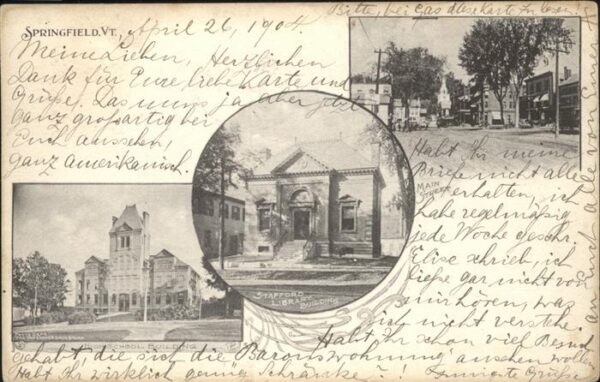 Bitte, bei Gas diese Karte zu
SPRINGFIELD, VT., April 26, 1904.
Meine Lieben, Herzlichen
Dank für Eure liebe Karte und
Grüße. Das muss ja aber jetzt
ganz großartig bei
Euch aussehen,
ganz amerikanisch.
Habt Ihr meine
Briefe nicht alle
erhalten, ich
habe regelmäßig
jede Woche geschr.
Elise schrieb, ich
ließe gar nicht von
mir hören, was
ich nicht verstehe.
Habt ihr schon viel Besuch
gehabt, die sich die Baronswohnung ansehen wollen
Habt Ihr wirklich genug Schränke? ! Innigste Grüße
an Euch alle von Eurer
MAIN STREET
STAFFORD
LIBRARY
BUILDING
HIGH SCHOOL BUILDING